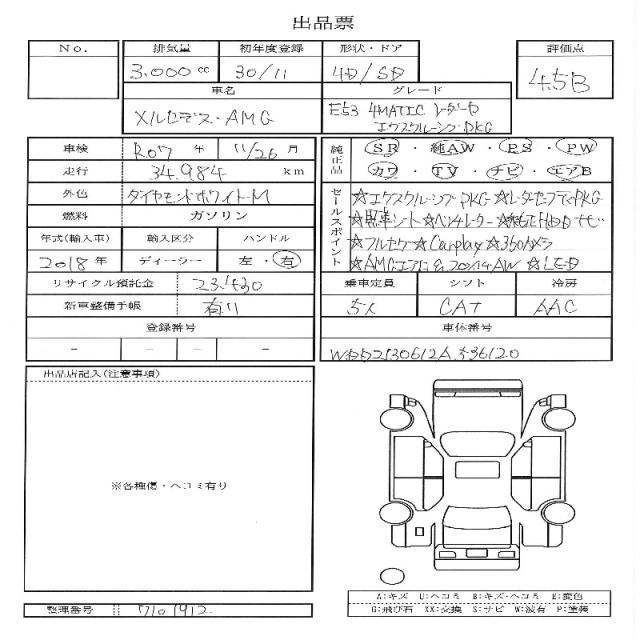 出品票
No. 排気量 初年度登録 形状・ドア 評価点
3.000 cc 30/11 4D/SD 4.5B
車名 グレード
メルセデス・AMG E53 4MATIC レーダーP
エクスクルーシブPKG
車検 R07 年 11/26 月
走行 34.984 km
外色 ダイヤモンドホワイトM
燃料 ガソリン
年式(輸入車) 輸入区分 ハンドル
2018 年 ディーラー 左・右
リサイクル預託金 23.430
新車整備手帳 有り
登録番号
- - - -
純正品 SR・純AW・PS・PW
カワ・TV・ナビ・エアB
セールスポイント ☆エクスクルーシブPKG☆レーダーセーフティPKG
☆黒革シート☆ベンチレーター☆純正HDDナビ
☆フルセグ☆Carplay☆360カメラ
☆AMGエアロ&20インチAW ☆LED
乗車定員 シフト 冷房
5人 CAT AAC
車体番号
WDD2130612A536120
出品店記入(注意事項)
※各種傷・ヘコミ有り
A:キズ U:ヘコミ B:キズ・ヘコミ E:変色
G:飛び石 XX:交換 S:サビ W:波有 P:塗装
整理番号 7101912